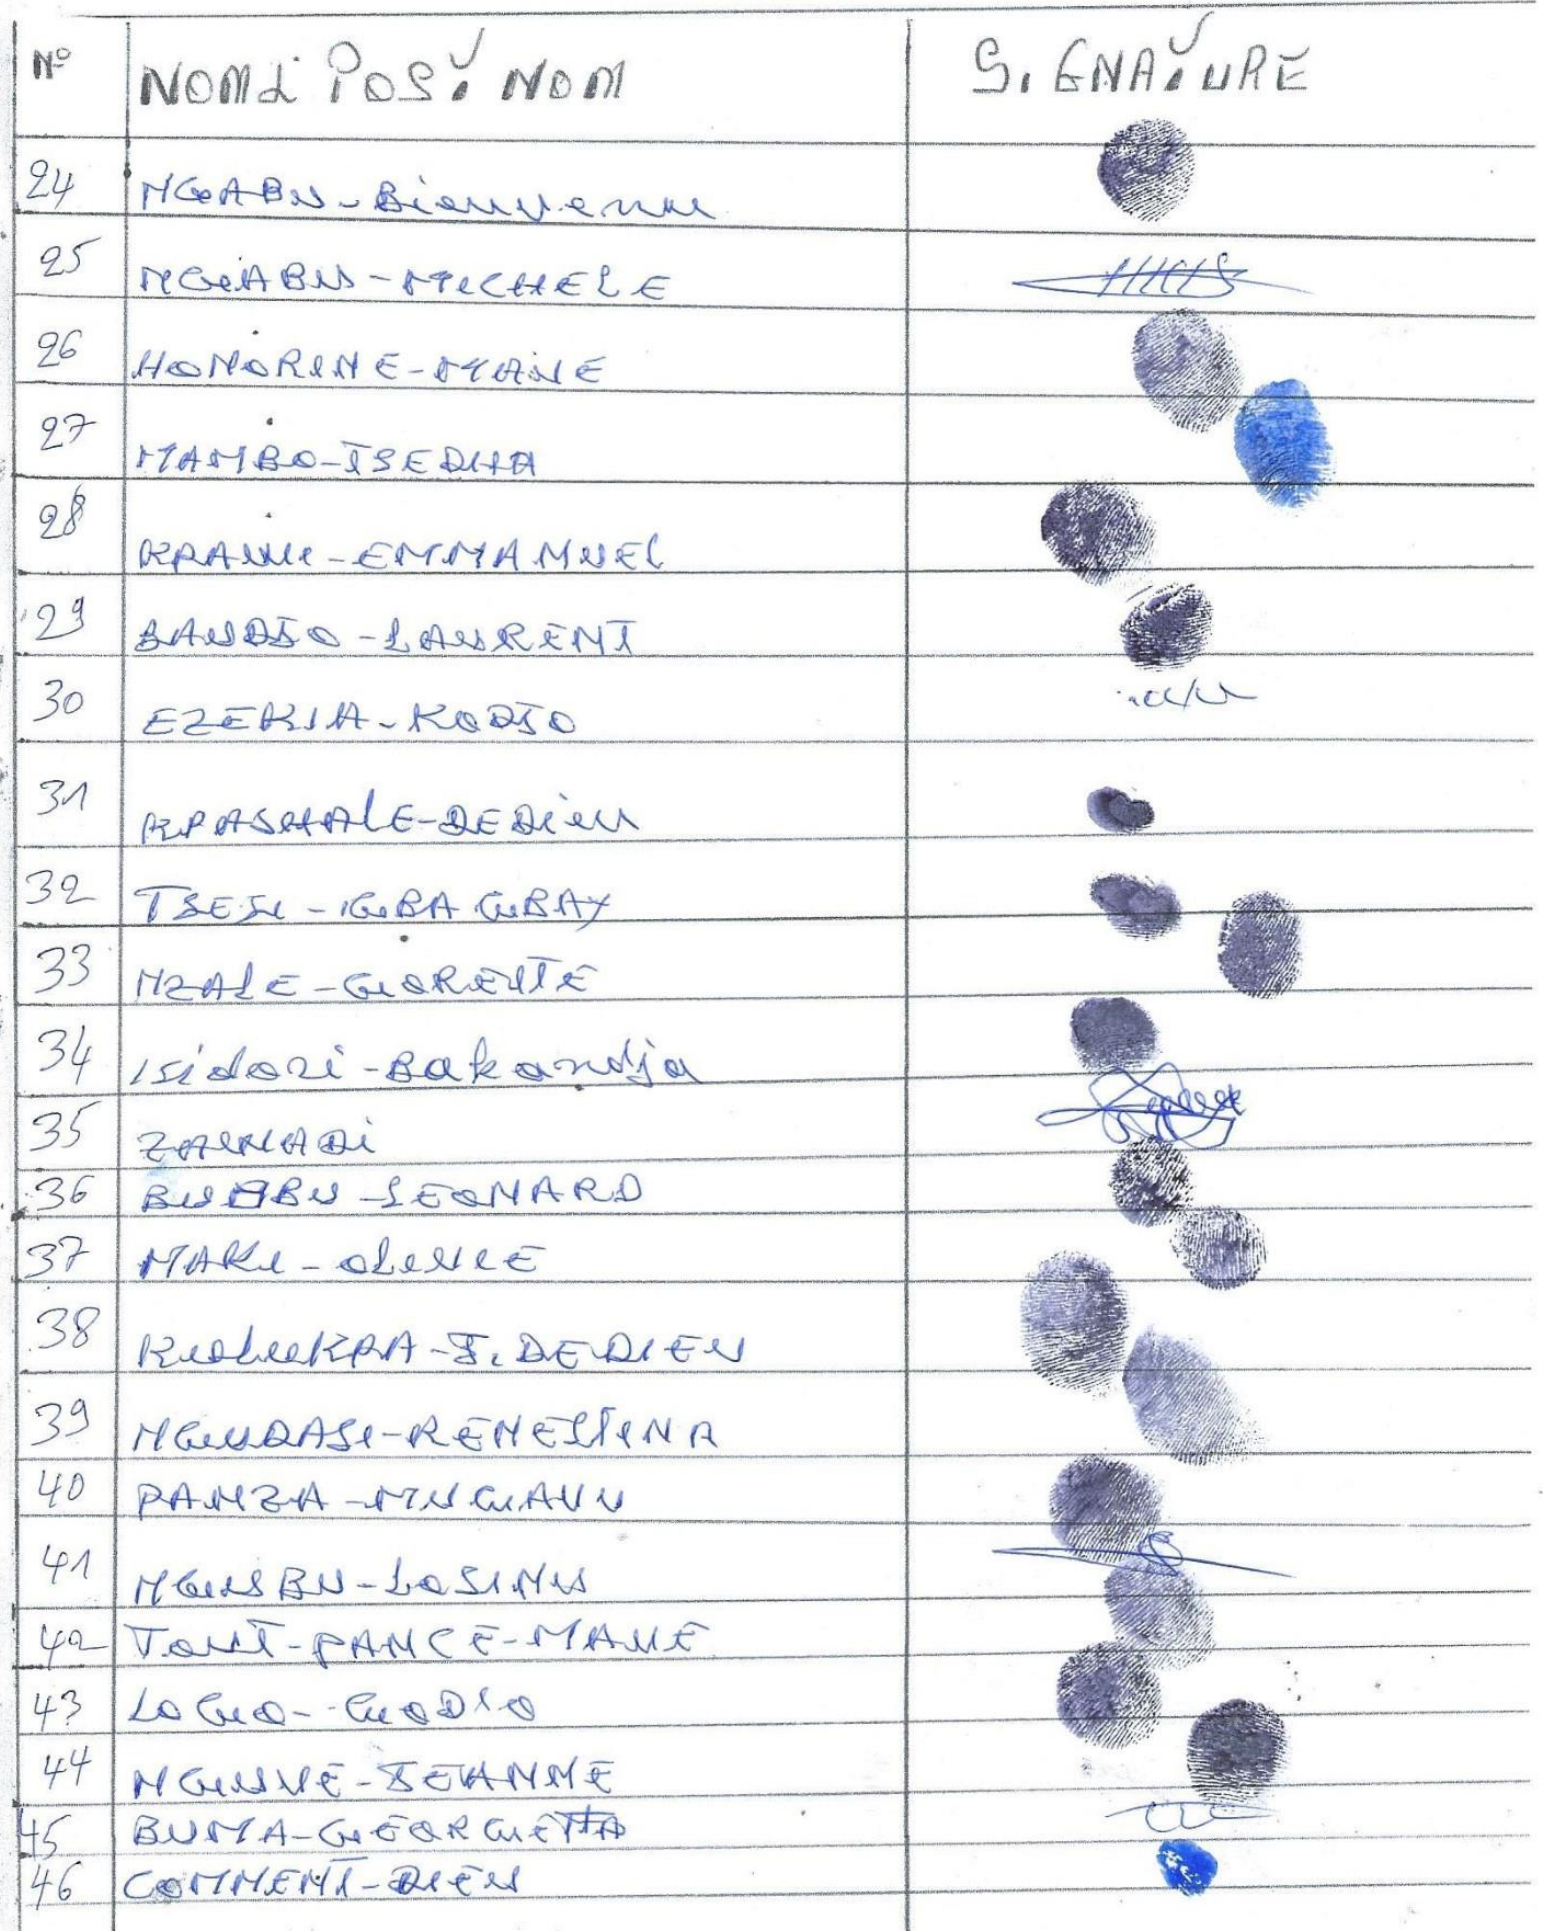 N° NOM & POST NOM SIGNATURE
24 NGABU-Bienvenu
25 NGABU-MICHELE
26 HONORINE-MAVE
27 MAMBO-TSEDHA
28 EMMANUEL
29 BAUDJO-LAURENT
30 EZEKIA-KODJO
31 KPASHALE-DEDieu
32 TSESI-GBAGBAY
33 NZALE-GORETTE
34 Isidori-Bakandja
35 ZAINADi
36 LEONARD
37 MAKI-OLIVE
38 J. DEDIEU
39 NGUDASI-RENESTINA
40 PANZA-MUGAVU
41 NGUSBU-LOSINU
42 TOUT-PANCE-MAVE
43 LOGO-GODJO
44 NGUVE-JEANNE
45 BUMA-GEORGETTA
46 COMMENT-DIEU